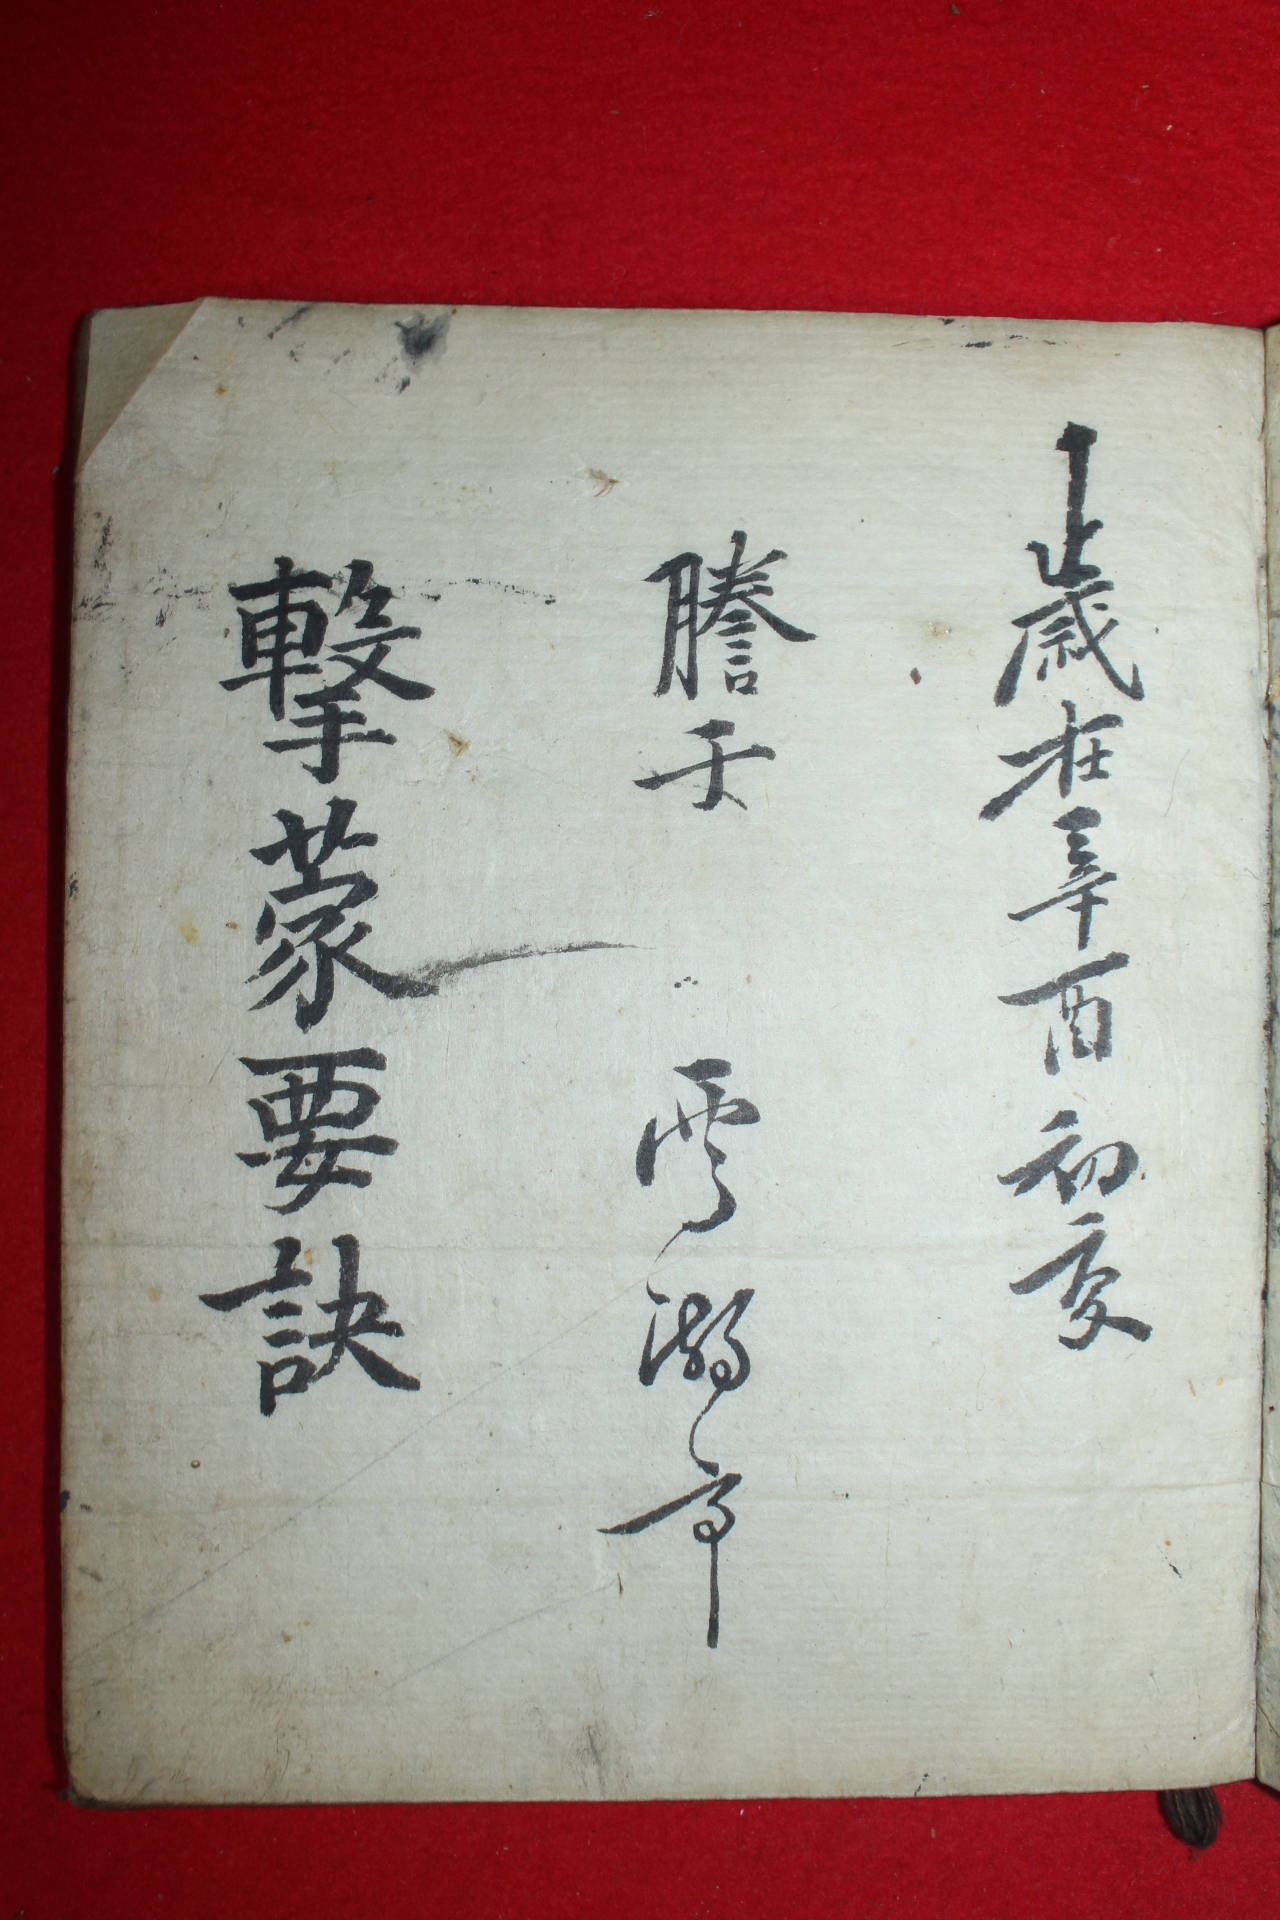 歲在辛酉初夏
謄于 雲湖亭
擊蒙要訣